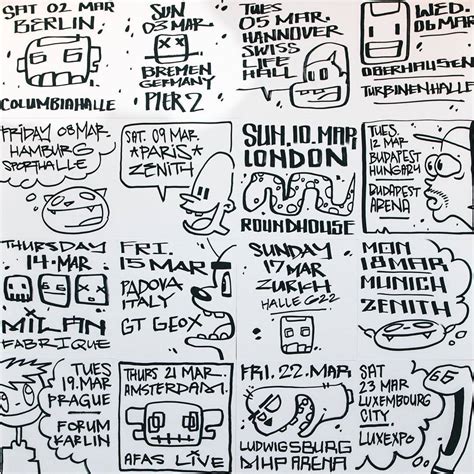 SAT 02 MAR
BERLIN
COLUMBIAHALLE
SUN
03 MAR
BREMEN
GERMANY
PIER 2
TUES
05 MAR.
HANNOVER
SWISS
LIFE
HALL
WED.
06 MAR
OBERHAUSEN
TURBINENHALLE
FRIDAY 08 MAR.
HAMBURG
SPORTHALLE
SAT. 09 MAR.
*PARIS*
ZENITH
SUN. 10. MAR,
LONDON
ROUNDHOUSE
TUES.
12 MAR
BUDAPEST
HUNGARY
BUDAPEST
ARENA
THURSDAY
14·MAR·
MILAN
FABRIQUE
FRI.
15 MAR
PADOVA
ITALY
GT GEOX
SUNDAY
17 MAR
ZURICH
HALLE 622
MON
18 MAR
MUNICH
ZENITH
TUES
19. MAR
PRAGUE
FORUM
KARLIN
THURS 21 MAR.
AMSTERDAM.
AFAS LIVE
FRI. 22. MAR.
LUDWIGSBURG
MHP ARENA
SAT
23 MAR
LUXEMBOURG
CITY
LUXEXPO